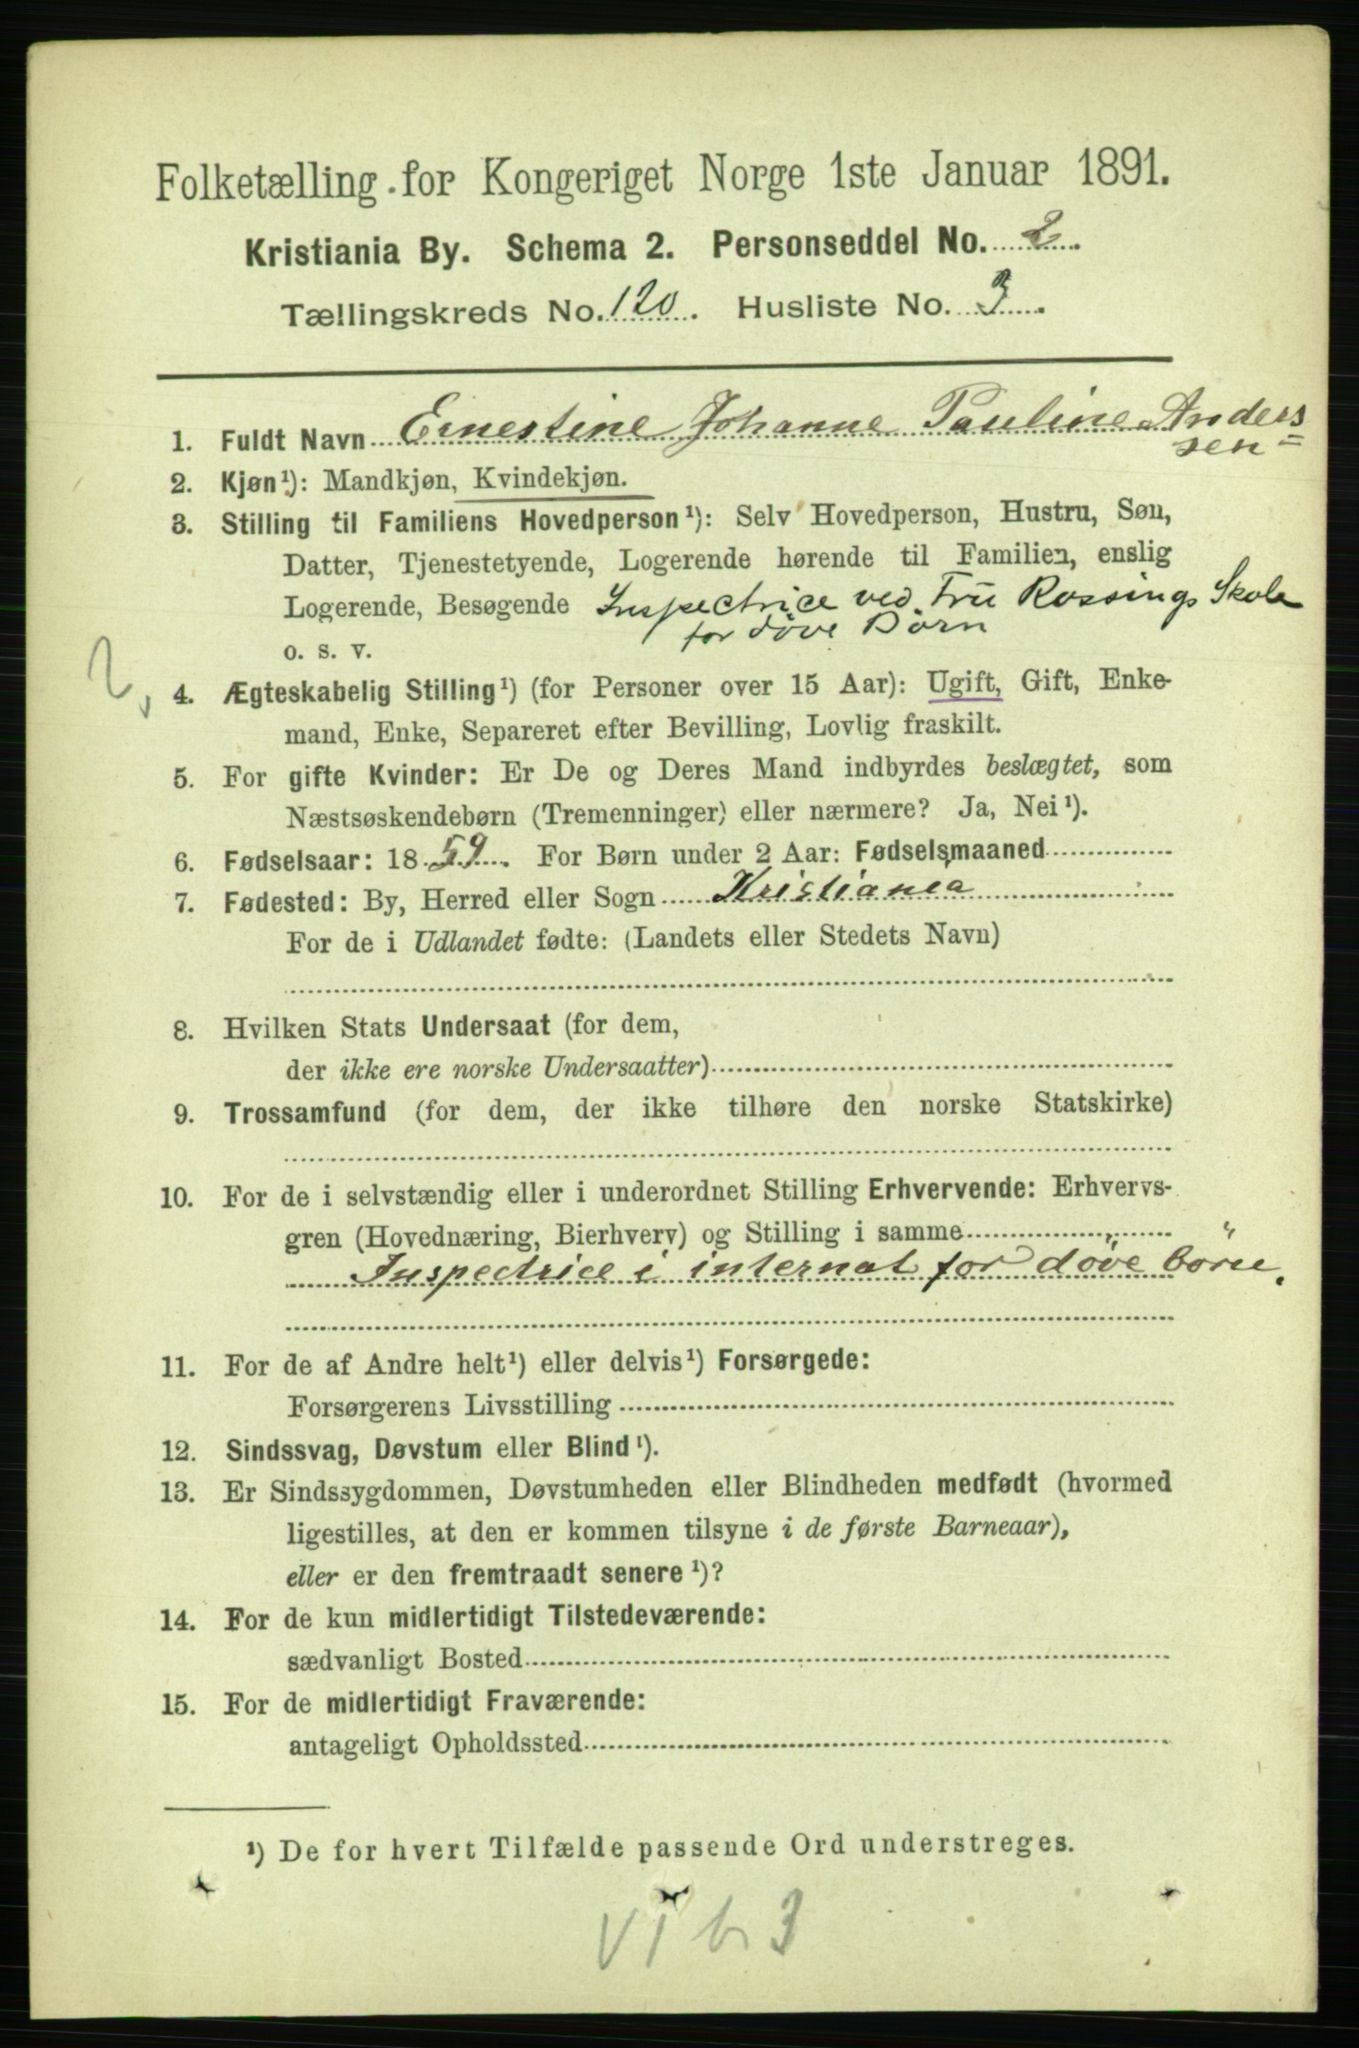 Folketælling for Kongeriget Norge 1ste Januar 1891.
Kristiania By. Schema 2. Personseddel No. 2.
Tællingskreds No. 120. Husliste No. 3.
1. Fuldt Navn Ernestine Johanne Pauline Anders
sen =
2. Kjøn¹): Mandkjøn, Kvindekjøn.
3. Stilling til Familiens Hovedperson¹): Selv Hovedperson, Hustru, Søn,
Datter, Tjenestetyende, Logerende hørende til Familien, enslig
Logerende, Besøgende Inspectrice ved Fru Rossings Skole
for døve Børn
o. s. v.
2,
4. Ægteskabelig Stilling¹) (for Personer over 15 Aar): Ugift, Gift, Enke-
mand, Enke, Separeret efter Bevilling, Lovlig fraskilt.
5. For gifte Kvinder: Er De og Deres Mand indbyrdes beslægtet, som
Næstsøskendebørn (Tremenninger) eller nærmere? Ja, Nei¹).
6. Fødselsaar: 1859. For Børn under 2 Aar: Fødselsmaaned
7. Fødested: By, Herred eller Sogn Kristiania
For de i Udlandet fødte: (Landets eller Stedets Navn)
8. Hvilken Stats Undersaat (for dem,
der ikke ere norske Undersaatter)
9. Trossamfund (for dem, der ikke tilhøre den norske Statskirke)
10. For de i selvstændig eller i underordnet Stilling Erhvervende: Erhvervs-
gren (Hovednæring, Bierhverv) og Stilling i samme
Inspectrice i internat for döve börn.
11. For de af Andre helt¹) eller delvis¹) Forsørgede:
Forsørgerens Livsstilling
12. Sindssvag, Døvstum eller Blind¹).
13. Er Sindssygdommen, Døvstumheden eller Blindheden medfødt (hvormed
ligestilles, at den er kommen tilsyne i de første Barneaar),
eller er den fremtraadt senere¹)?
14. For de kun midlertidigt Tilstedeværende:
sædvanligt Bosted
15. For de midlertidigt Fraværende:
antageligt Opholdssted
¹) De for hvert Tilfælde passende Ord understreges.
VI b 3